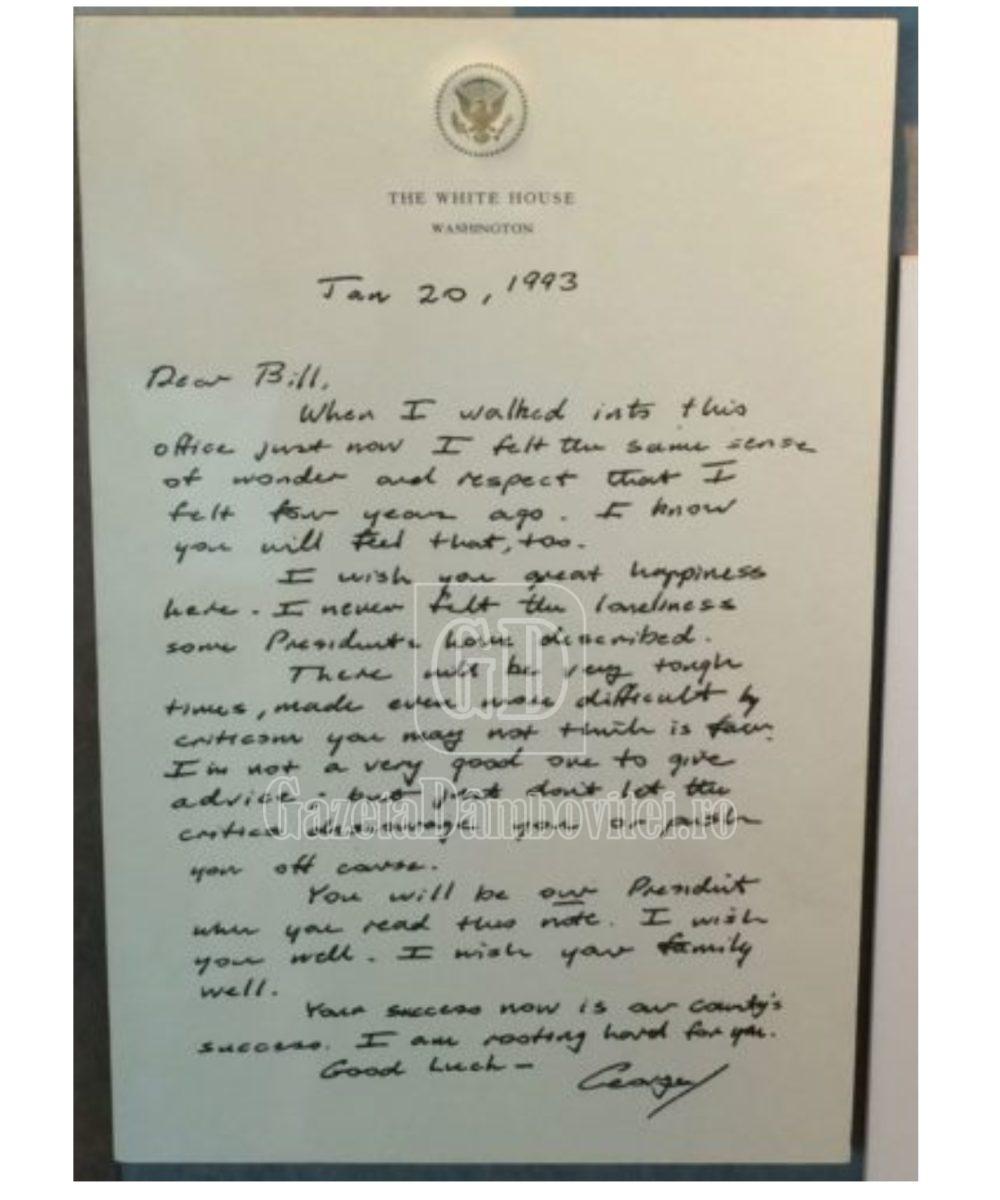 THE WHITE HOUSE
WASHINGTON
Jan 20, 1993
Dear Bill,
When I walked into this
office just now I felt the same sense
of wonder and respect that I
felt four years ago. I know
you will feel that, too.
I wish you great happiness
here. I never felt the loneliness
some Presidents have described.
There will be very tough
times, made even more difficult by
criticism you may not think is fair.
I'm not a very good one to give
advice; but just don't let the
critics discourage you or push
you off course.
You will be our President
when you read this note. I wish
you well. I wish your family
well.
Your success now is our county's
success. I am rooting hard for you.
Good Luck -
George
GD
GazetaDambovitei.ro